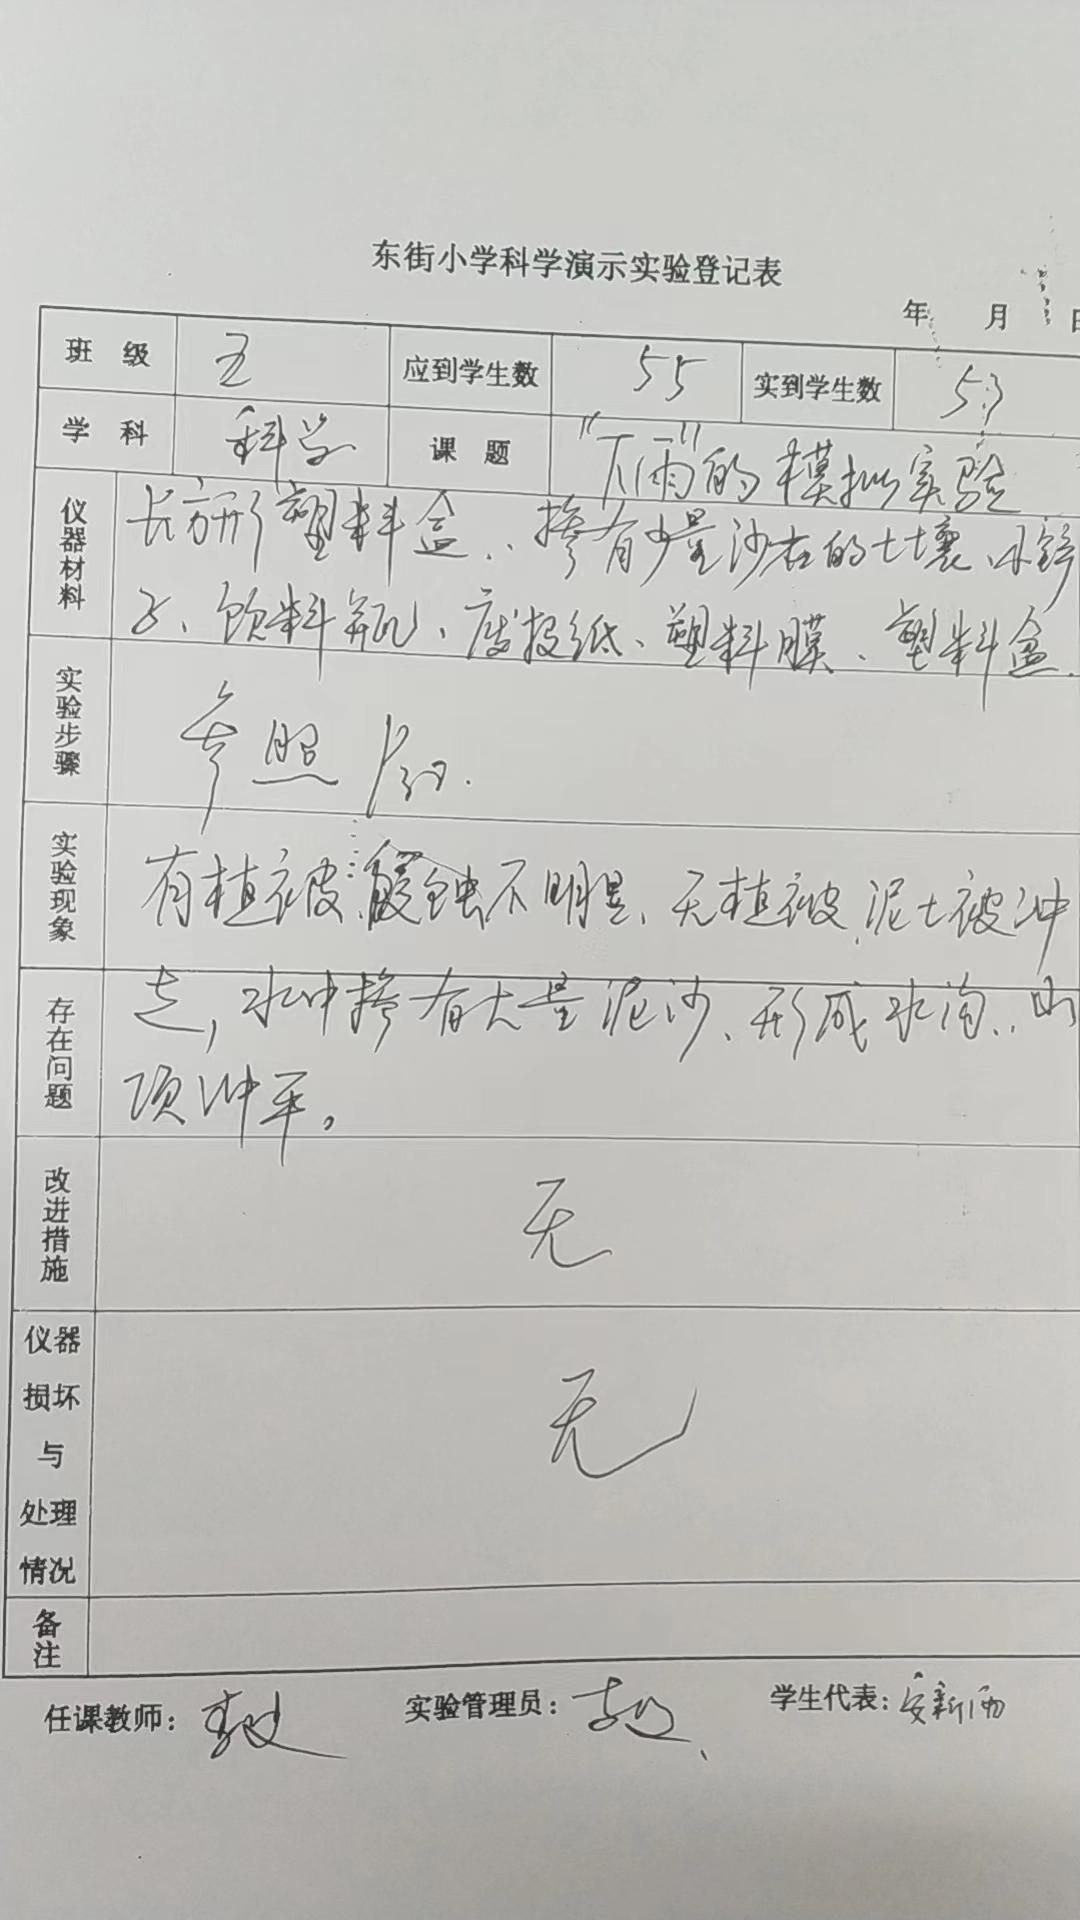 东街小学科学演示实验登记表
年 月 日
班 级 五 应到学生数 55 实到学生数 53
学 科 科学 课 题 "下雨"的模拟实验
仪器材料 长方形塑料盒、掺有少量沙石的土壤、小铲
子、饮料瓶、废报纸、塑料膜、塑料盒.
实验步骤 参照
实验现象 有植被、侵蚀不明显、无植被、泥土被冲
存在问题 走,水中掺有大量泥沙、形成水沟、山
顶冲平。
改进措施 无
仪器
损坏
与 无
处理
情况
备注
任课教师: 实验管理员: 学生代表:安新雨